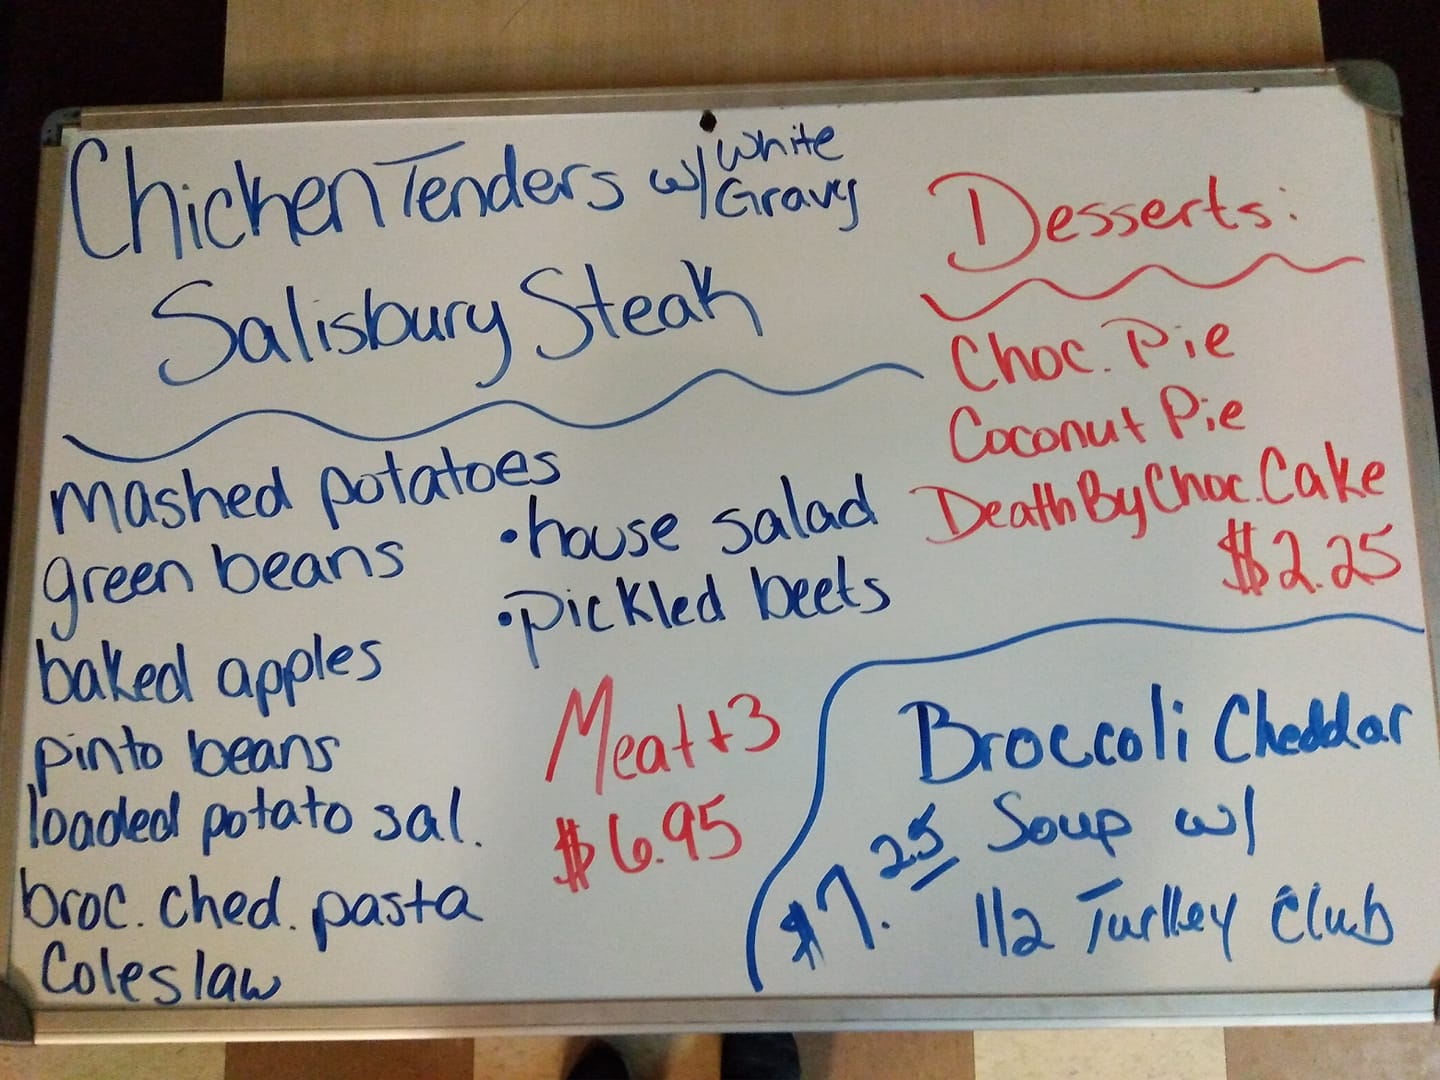 Chicken Tenders w/ White Gravy
Salisbury Steak
mashed potatoes
green beans
baked apples
pinto beans
loaded potato sal.
broc. ched. pasta
Coleslaw
•house salad
•pickled beets
Meat+3
$6.95
Desserts:
Choc. Pie
Coconut Pie
Death By Choc. Cake
$2.25
Broccoli Cheddar
Soup w/
1/2 Turkey Club
$7.25